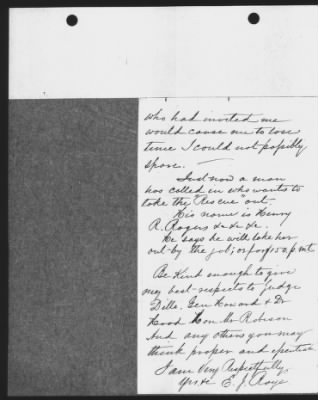 who had invited me
would cause me to lose
time I could not possibly
spare. —
Just now a man
has called in who wants to
take the "Rescue" out.
His name is Henry
R. Rogers &c &c &c.
He says he will take her
out by the job; or for
Be Kind enough to give
my best respects to Judge
Dills. Gen Howard & Dr
Hood Hon Mr Robison
And any others you may
think proper and
I am Very Respectfully
Yrs &c E. J. Roye